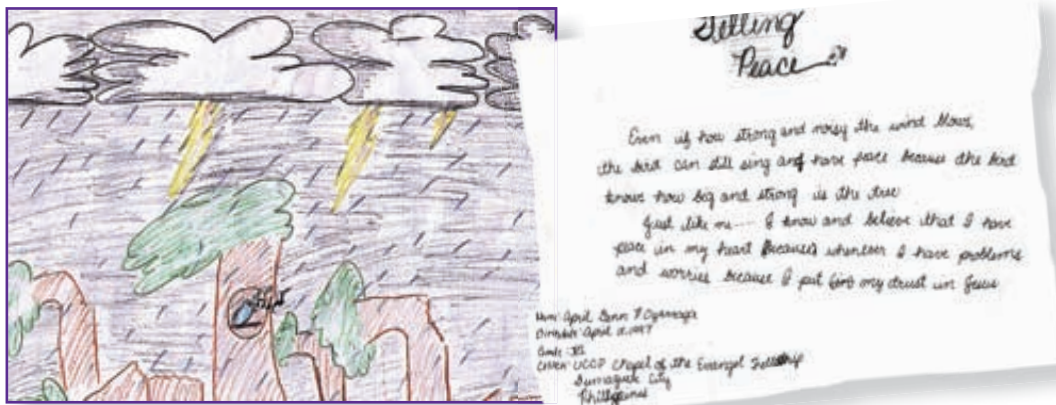 Peace
Even if how strong and noisy the wind blows,
the bird can still sing and have peace because the bird
knows how big and strong is the tree
Just like me.... I know and believe that I have
peace in my heart because whenever I have problems
and worries because I put my trust in Jesus
April
April
Church UCCP Chapel of the Evangel Fellowship
Dumaguete City
Philippines